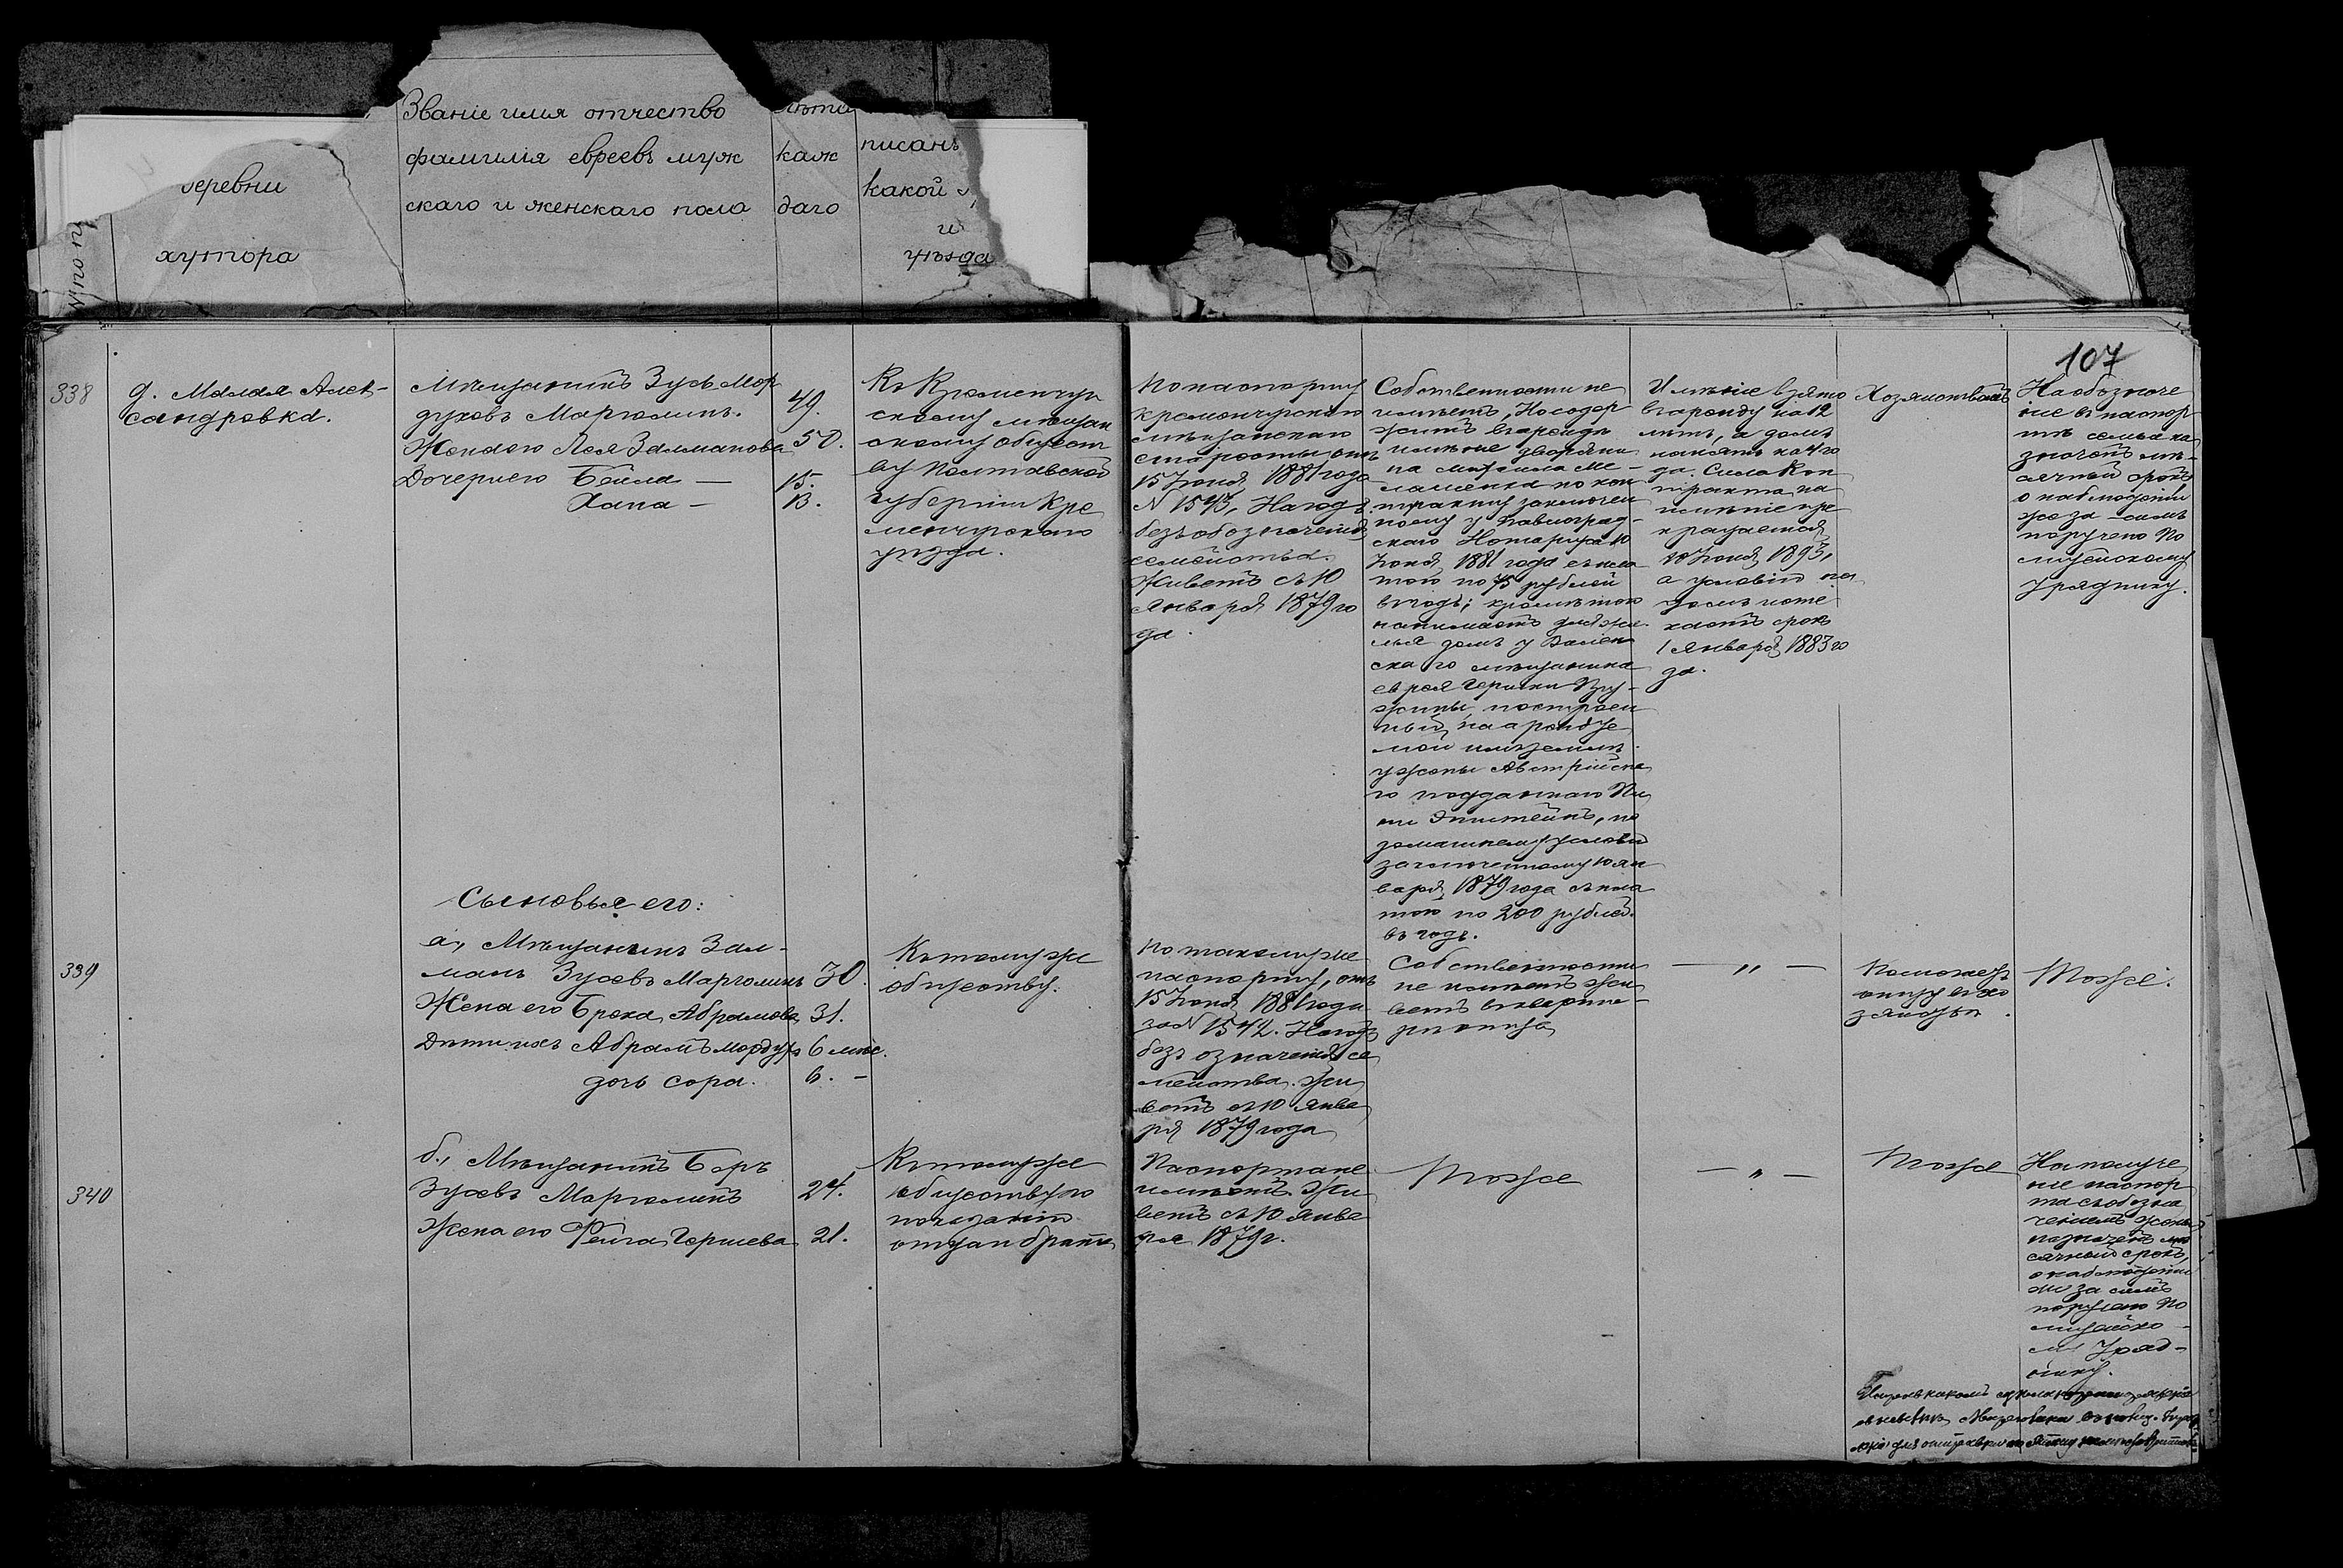 Званіе имя отчество
фамилія евреевъ муж
скаго и женскаго пола
лѣта
каж
даго
писанъ
какой
и
уѣзда
деревни
хутора
№ по п
107
338
д. Малая Алек-
сандровка.
Мѣщанинъ Зусь Мор
духовъ Марголинъ.
Жена его Лея Залманова
Дочери его Бейла —
Хана —
49.
50.
15.
13.
Къ Кременчуг
скому мѣщан
скому общест
ву Полтавской
губерніи Кре
менчугскаго
уѣзда.
По паспорту
кременчугскаго
мѣщанскаго
старосты отъ
15 Іюня 1881 года
N 1543, На годъ
безъ обозначенія
семейства.
Живетъ съ 10
Января 1879 го
да.
Собственности не
имѣетъ, Но содер
житъ въ арендѣ
имѣніе дворяни
на
по кон
тракту заключен
ному у Павлоград-
скаго Нотаріуса 10
Іюня 1881 года съ пла
тою по 75 рублей
въ годъ; кромѣ того
нанимаетъ для жи-
лья домъ у
скаго мѣщанина
еврея Гершки
построен
ный на арендуе
мой имъ землѣ
у жены Австрійска
го подданнаго
Эпштейнъ, по
домашнему условію
заключенному 10 Ян
варя 1879 года съ пла
тою по 200 рублей
въ годъ.
Имѣніе взято
въ аренду на 12
лѣтъ, а домъ
нанятъ на 4 го
да. Сила кон
тракта на
имѣніе пре
кращается
10 Іюня 1893,
а условій на
домъ исте
каетъ срокъ
1 Января 1883 го
да.
Хозяйствомъ
На обозначе
ніе въ паспор
тѣ семьи на
значенъ мѣ-
сячный срокъ
о наблюденіи
же за симъ
поручено По
лицейскому
Уряднику.
Сыновья его:
339
а, Мѣщанинъ Зал-
манъ Зусевъ Марголинъ 30.
Жена его Броха Абрамова 31.
Дѣти ихъ Абрамъ Мордухъ 6 мѣс.
дочь Сора. 6. —
Къ тому же
обществу.
По такому же
паспорту, отъ
15 Іюня 1881 года
за N 1542. На годъ
безъ означенія се
мейства. Жи
ветъ съ 10 Янва
ря 1879 года
Собственности
не имѣетъ жи
ветъ въ квартирѣ
— „ —
Помогаетъ
отцу въ хо
зяйствѣ.
Тоже.
340
б., Мѣщанинъ Беръ
Зусевъ Марголинъ 24.
Жена его Фейга Гершева 21.
Къ тому же
обществу по
показанію
отца и брата
Паспорта не
имѣетъ. Жи
ветъ съ 10 Янва
ря 1879 г.
Тоже
— „ —
Тоже
На получе
ніе паспор
та съ обозна
ченіемъ жены
назначенъ мѣ
сячный срокъ,
о наблюденіи
же за симъ
поручено По
лицейско-
му Уряд-
нику.